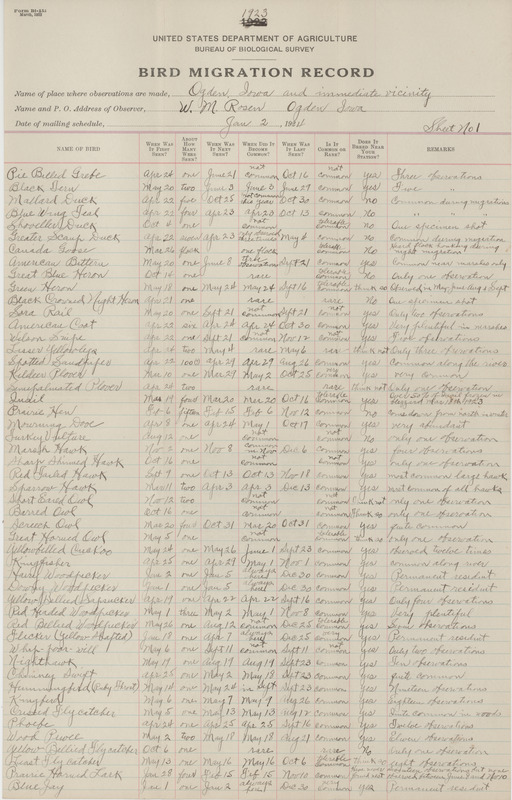 Form Bi-251
1923
1922
UNITED STATES DEPARTMENT OF AGRICULTURE
BUREAU OF BIOLOGICAL SURVEY
BIRD MIGRATION RECORD
Name of place where observations are made, Ogden, Iowa and immediate vicinity
Name and P. O. Address of Observer, W. M. Rosen Ogden Iowa
Date of mailing schedule, Jan 2, 1924 Sheet No 1
NAME OF BIRD WHEN WAS IT FIRST SEEN? ABOUT HOW MANY WERE SEEN? WHEN WAS IT NEXT SEEN? WHEN DID IT BECOME COMMON? WHEN WAS IT LAST SEEN? IS IT COMMON OR RARE? DOES IT BREED NEAR YOUR STATION? REMARKS
Pie Billed Grebe Apr 24 one June 21 not common Oct 16 not common yes Three observations
Black Tern May 20 two June 3 June 3 June 27 common yes Five " "
Mallard Duck Apr 22 five Oct 25 Oct 30 common no Common during migrations
Blue Wing Teal Apr 22 four Apr 23 Apr 23 Oct 13 common No " " "
Shoveller Duck Oct 6 one not common no One specimen shot
Greater Scaup Duck Apr 22 Apr 23 May 6 common no Common during migration
Canada Goose Mar 26 flock one flock no
American Bittern May 20 one June 8 Sept 21 common yes Common near marshes only
Great Blue Heron Oct 14 one rare no Only one observation
Green Heron May 18 one May 24 May 24 Sept 16 think so
Black Crowned Night Heron Apr 21 one rare rare No One specimen shot
Sora Rail May 20 one Sept 21 not common Sept 21 not common yes Only two observations
American Coot Apr 22 Apr 24 Apr 24 Oct 30 common yes Very plentiful in marshes
Wilson Snipe Apr 22 one Sept 21 not common Nov 12 not common yes Five observations
Lesser Yellowlegs Apr 28 two May 4 rare May 6 rare think not Only three observations
Spotted Sandpiper Apr 22 Apr 29 Apr 29 Aug 26 common yes Common along the rivers
Killdeer Plover Mar 10 one Mar 29 May 2 Oct 25 common yes very common
Semipalmated Plover Apr 24 two rare rare think not Only one observation
Quail Mar 19 four Mar 20 Mar 20 Oct 16 yes
Prairie Hen Feb 6 fifteen Feb 15 Feb 6 Nov 12 common no
Mourning Dove Apr 8 one Apr 24 May 1 Oct 17 common yes very abundant
Turkey Vulture Aug 12 one not common not common no only one observation
Marsh Hawk Nov 2 one Nov 8 common in Nov Dec 6 common yes four observations
Sharp Shinned Hawk Oct 16 one not common not common yes only one observation
Red Tailed Hawk Sept 9 one Oct 13 Oct 13 Nov 18 common yes most common large hawk
Sparrow Hawk Mar 11 two Apr 3 Apr 3 Dec 13 common yes most common of all hawks
Short Eared Owl Nov 12 two not common not common think not only one observation
Barred Owl Oct 16 one not common not common think so only one observation
Screech Owl Mar 20 four Oct 31 Mar 20 Oct 31 common yes quite common
Great Horned Owl May 5 one not common think so only one observation
Yellowbilled Cuckoo May 24 one May 26 June 1 Sept 23 common yes observed twelve times
Kingfisher Apr 25 one Apr 29 May 1 Nov 1 common yes common along river
Hairy Woodpecker Jan 2 one Jan 5 always here Dec 30 common yes Permanent resident
Downy Woodpecker Jan 1 one Jan 5 always here Dec 30 common yes Permanent resident
Yellow Bellied Sapsucker Apr 19 one Apr 22 Apr 22 Sept 16 common yes Only four observations
Red Headed Woodpecker May 1 three May 2 May 1 Nov 8 common yes Very plentiful
Red Bellied Woodpecker May 26 one Aug 12 not common Dec 25 not common yes observations
Flicker (Yellow Shafted) Jan 19 one Apr 7 always here Dec 25 yes Permanent resident
Whip-poor-will May 6 one Sept 11 not common Sept 11 not common yes Only two observations
Nighthawk May 19 one Aug 19 Aug 19 Sept 23 common yes Ten observations
Chimney Swift Apr 25 one May 2 May 18 Sept 23 common yes quite common
Hummingbird (Ruby Throat) May 14 May 24 in Sept Sept 23 common yes Nineteen observations
Kingbird May 6 one May 7 May 9 Aug 26 common yes Eighteen observations
Crested Flycatcher May 5 one May 13 May 13 July 17 common yes Quite common in woods
Phoebe Apr 24 one Apr 25 Apr 25 Sept 16 common yes Twelve observations
Wood Pewee May 2 two May 18 May 18 Aug 24 common yes Eleven observations
Yellow Bellied Flycatcher Oct 6 one rare rare No Only one observation
Least Flycatcher May 13 one May 16 May 16 Oct 6 think so eight observations
Prairie Horned Lark Jan 28 four Feb 15 Feb 15 Nov 10 common
Blue Jay Jan 1 one Jan 2 always here Dec 30 common yes Permanent resident